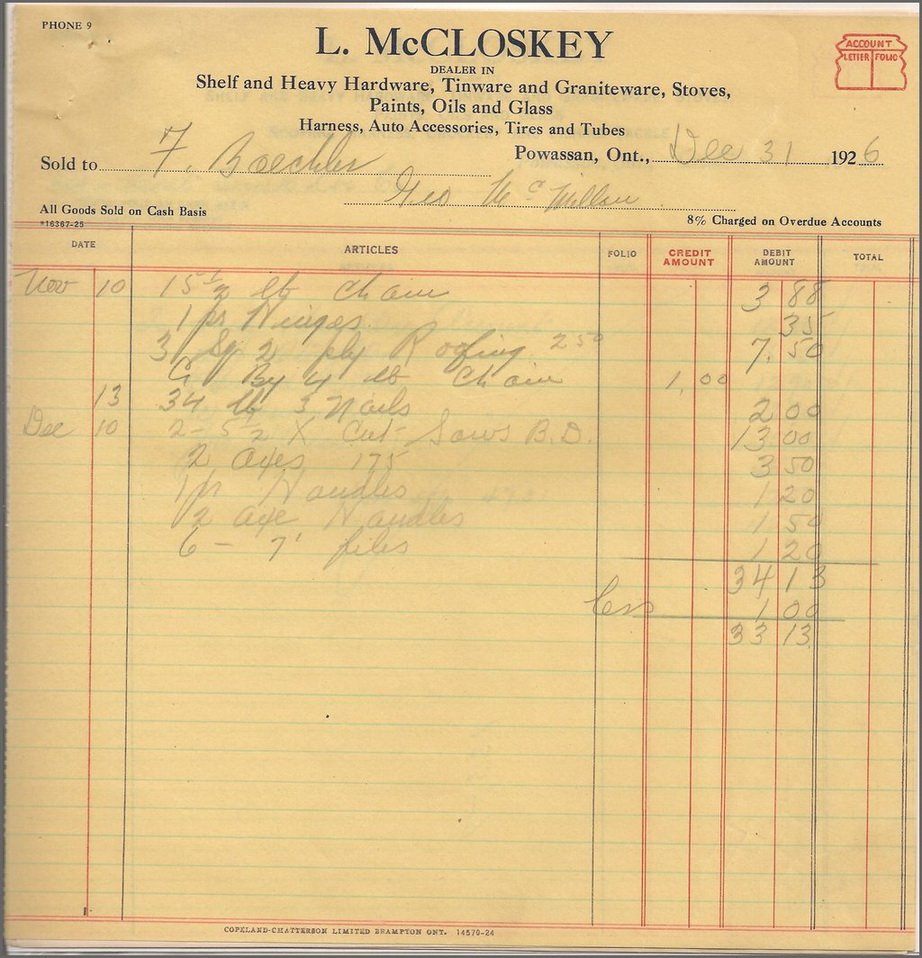 PHONE 9
L. McCLOSKEY
DEALER IN
Shelf and Heavy Hardware, Tinware and Graniteware, Stoves,
Paints, Oils and Glass
Harness, Auto Accessories, Tires and Tubes
ACCOUNT
LETTER FOLIO
Sold to F. Baechler Powassan, Ont., Dec 31 1926
Geo McMillan
All Goods Sold on Cash Basis 8% Charged on Overdue Accounts
*16367-25
DATE ARTICLES FOLIO CREDIT AMOUNT DEBIT AMOUNT TOTAL
Nov 10 15½ lb Chain 3 88
1 pr Hinges 35
3 Sq 2 ply Roofing 250 7.50
By 4 lb Chain 1,00
13 34 lb 3 Nails 2 00
Dec 10 2- 5½ X Cut Saws B.D. 13 00
2 Axes 175 3 50
1 pr Handles 1 20
2 axe Handles 1 50
6 - 7" files 1 20
34 13
less 1 00
33 13
COPELAND-CHATTERSON LIMITED BRAMPTON ONT. 14570-24